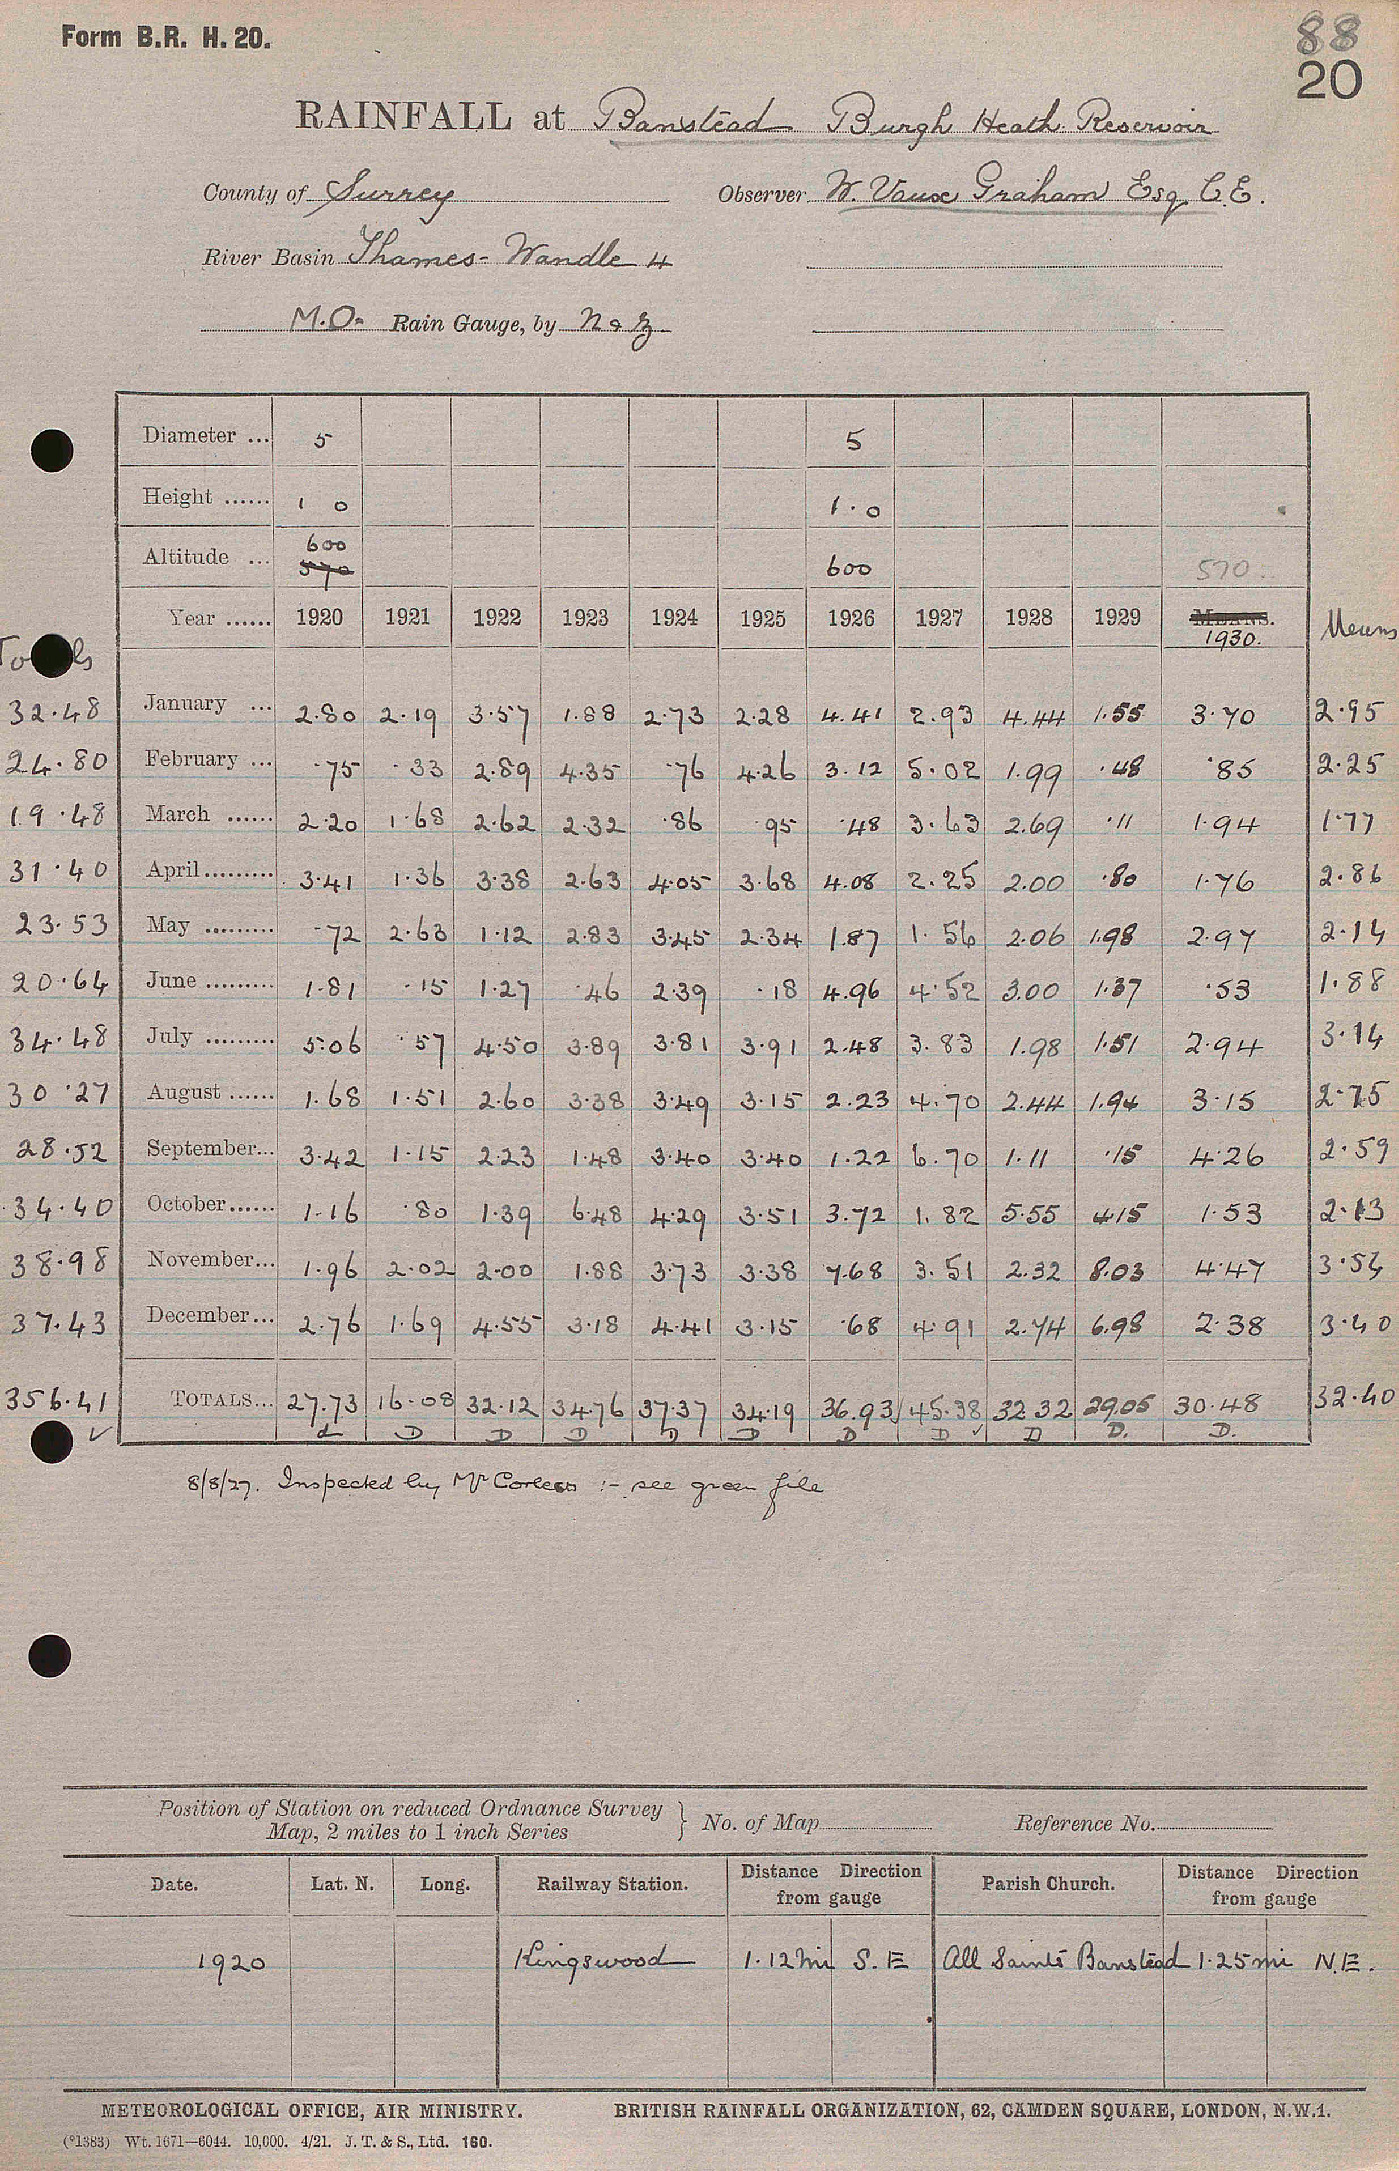 Form B.R. H. 20.
88
20
RAINFALL at Banstead Burgh Heath Reservoir
County of Surrey Observer W. Vaux Graham Esq C.E.
River Basin Thames - Wandle 4
M.O. Rain Gauge, by N & Z
Diameter ... 5 5
Height ...... 1 0 1.0
Altitude ... 600 570 600 570
Year ...... 1920 1921 1922 1923 1924 1925 1926 1927 1928 1929 MEANS. 1930. Means
Totals
32.48 January ... 2.80 2.19 3.57 1.88 2.73 2.28 4.41 2.93 4.44 1.55 3.70 2.95
24.80 February ... .75 .33 2.89 4.35 .76 4.26 3.12 5.02 1.99 .48 .85 2.25
19.48 March ...... 2.20 1.68 2.62 2.32 .86 .95 .48 3.63 2.69 .11 1.94 1.77
31.40 April ......... 3.41 1.36 3.38 2.63 4.05 3.68 4.08 2.25 2.00 .80 1.76 2.86
23.53 May ......... .72 2.63 1.12 2.83 3.45 2.34 1.87 1.56 2.06 1.98 2.97 2.14
20.64 June ......... 1.81 .15 1.27 .46 2.39 .18 4.96 4.52 3.00 1.37 .53 1.88
34.48 July ......... 5.06 .57 4.50 3.89 3.81 3.91 2.48 3.83 1.98 1.51 2.94 3.14
30.27 August ...... 1.68 1.51 2.60 3.38 3.49 3.15 2.23 4.70 2.44 1.94 3.15 2.75
28.52 September... 3.42 1.15 2.23 1.48 3.40 3.40 1.22 6.70 1.11 .15 4.26 2.59
34.40 October...... 1.16 .80 1.39 6.48 4.29 3.51 3.72 1.82 5.55 4.15 1.53 2.13
38.98 November... 1.96 2.02 2.00 1.88 3.73 3.38 7.68 3.51 2.32 8.03 4.47 3.54
37.43 December... 2.76 1.69 4.55 3.18 4.41 3.15 .68 4.91 2.74 6.98 2.38 3.40
356.41 TOTALS... 27.73 16.08 32.12 34.76 37.37 34.19 36.93 45.38 32.32 29.05 30.48 32.40
D D D D D D D D D. D.
8/8/27. Inspected by Mr Corless :- see green file
Position of Station on reduced Ordnance Survey
Map, 2 miles to 1 inch Series } No. of Map Reference No.
Date. Lat. N. Long. Railway Station. Distance Direction from gauge Parish Church. Distance Direction from gauge
1920 Kingswood 1.12 mi S.E All Saints Banstead 1.25 mi N.E.
METEOROLOGICAL OFFICE, AIR MINISTRY. BRITISH RAINFALL ORGANIZATION, 62, CAMDEN SQUARE, LONDON, N.W.1.
(*1383) Wt. 1671—6044. 10,000. 4/21. J. T. & S., Ltd. 160.